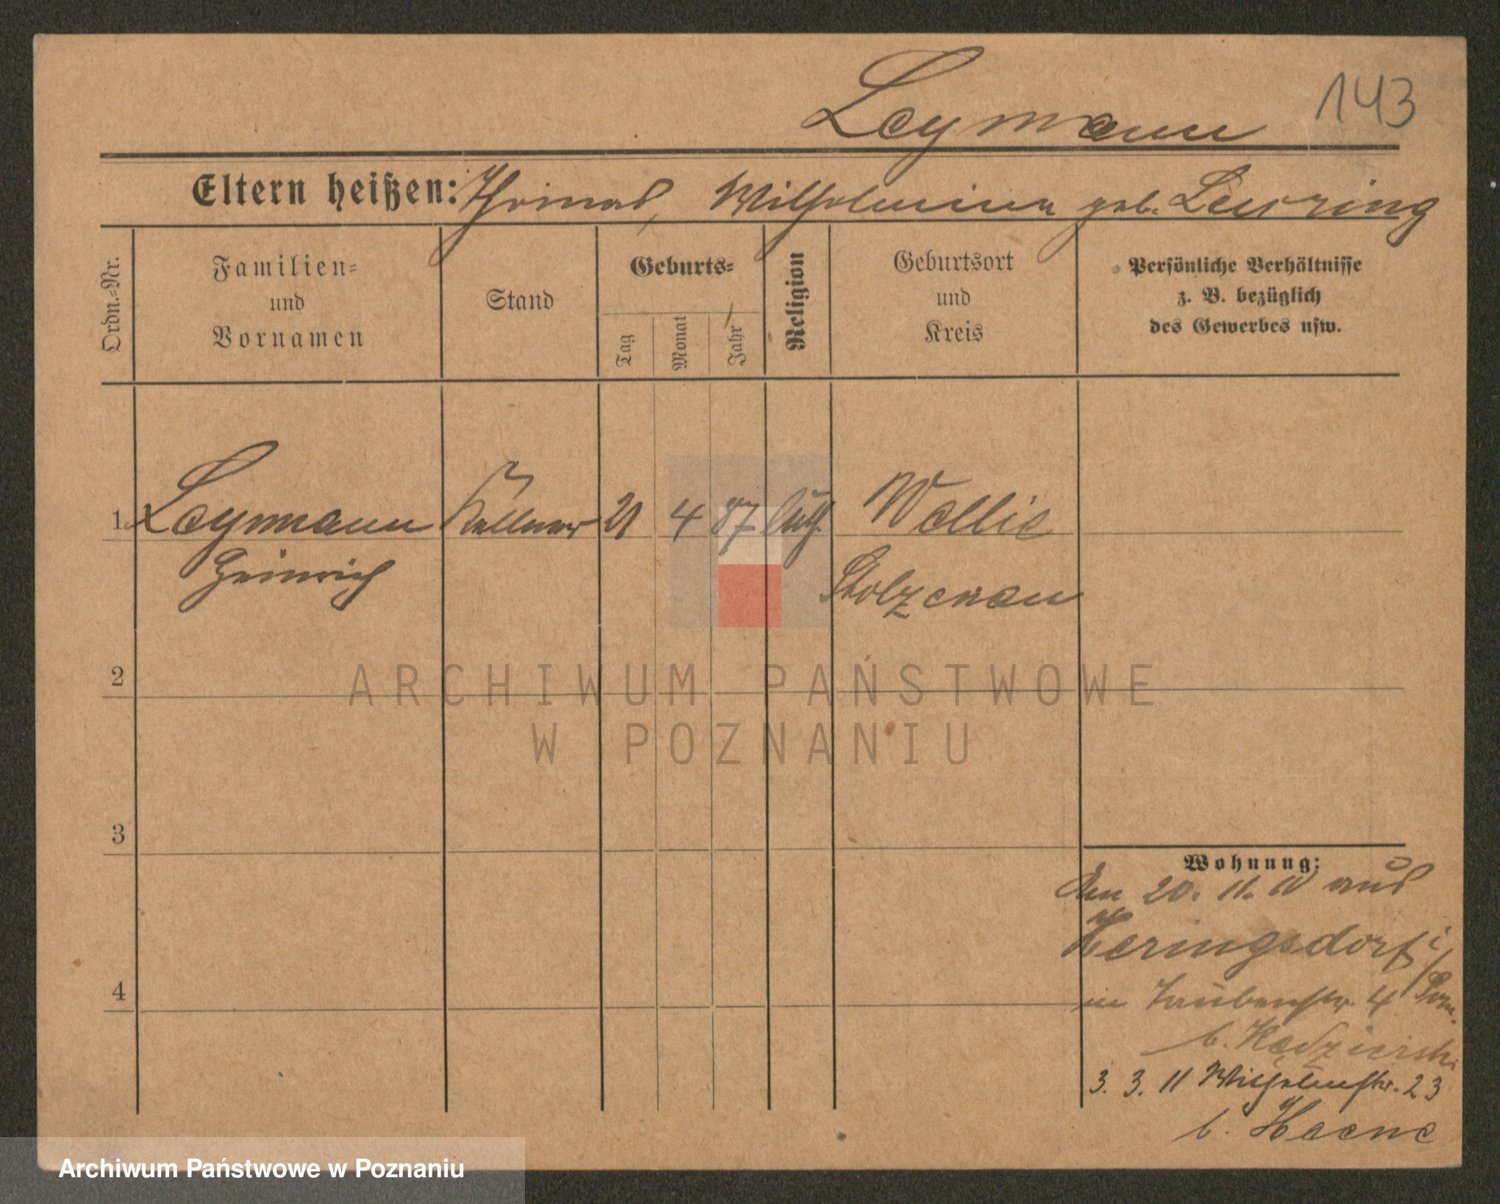 143
Leymann
Eltern heißen: Thomas, Wilhelmine geb. Leyring
Ordn.-Nr.
Familien-
und
Vornamen
Stand
Geburts-
Tag
Monat
Jahr
Religion
Geburtsort
und
Kreis
Persönliche Verhältnisse
z. B. bezüglich
des Gewerbes usw.
1 Leymann Kellner 21 4 87 luth. Wellie
Heinrich Stolzenau
2
3
4
Wohnung:
Am 20. 11. 10 aus
Heringsdorf i/
in Taubenstr. 4 Pom.
b. Kędzierski
3. 3. 11 Wilhelmstr. 23
b. Haene
ARCHIWUM PAŃSTWOWE
W POZNANIU
Archiwum Państwowe w Poznaniu